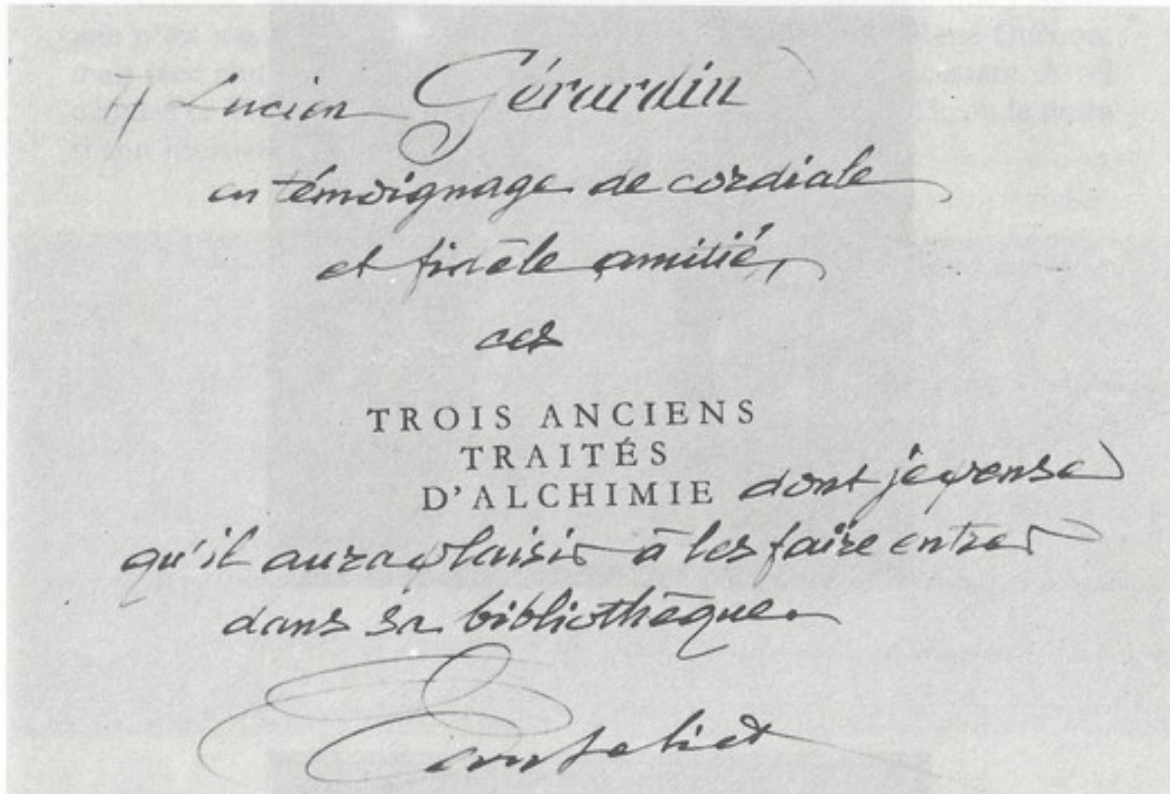 À Lucien Gérardin
en témoignage de cordiale
et fidèle amitié,
ces
TROIS ANCIENS
TRAITÉS
D'ALCHIMIE dont je pense
qu'il aura plaisir à les faire entrer
dans sa bibliothèque.
Canseliet